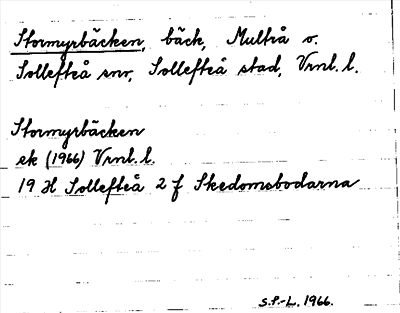 Stormyrbäcken, bäck, Multrå o.
Sollefteå snr, Sollefteå stad, Vrnl. l.
Stormyrbäcken
ek (1966) Vrnl. l.
19 H Sollefteå 2 f Skedomsbodarna
S.P.-L. 1966.